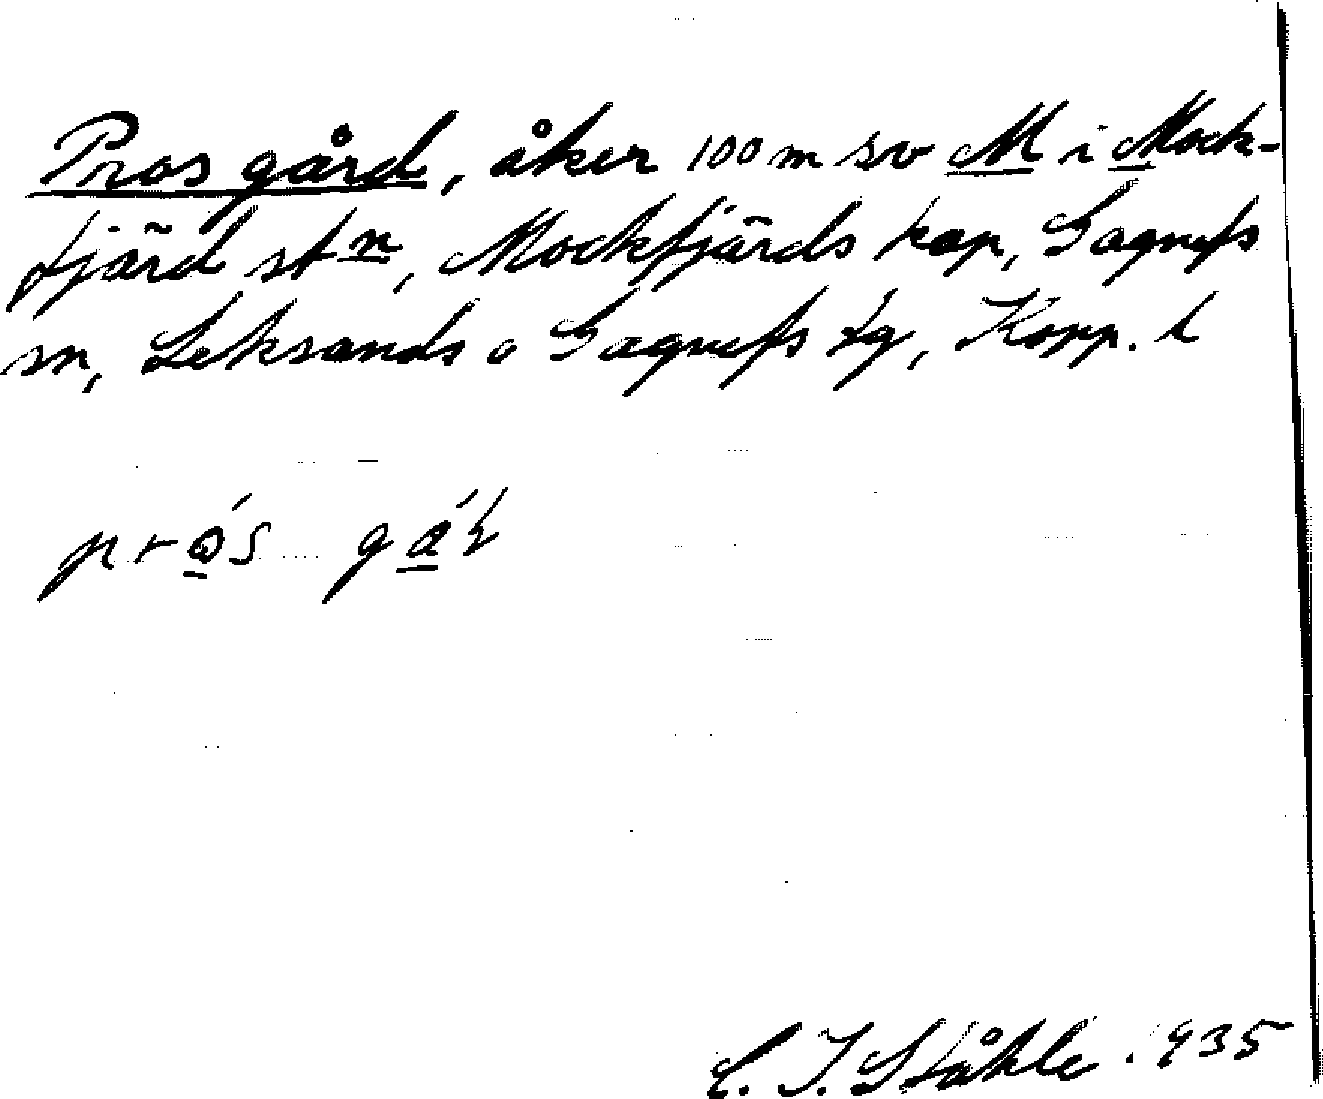 Pros gård, åker 100 m sv M i Mock-
fjärd stn, Mockfjärds kap, Gagnefs
sn, Leksands o Gagnefs tg, Kopp. l
C. I. Ståhle. 1935